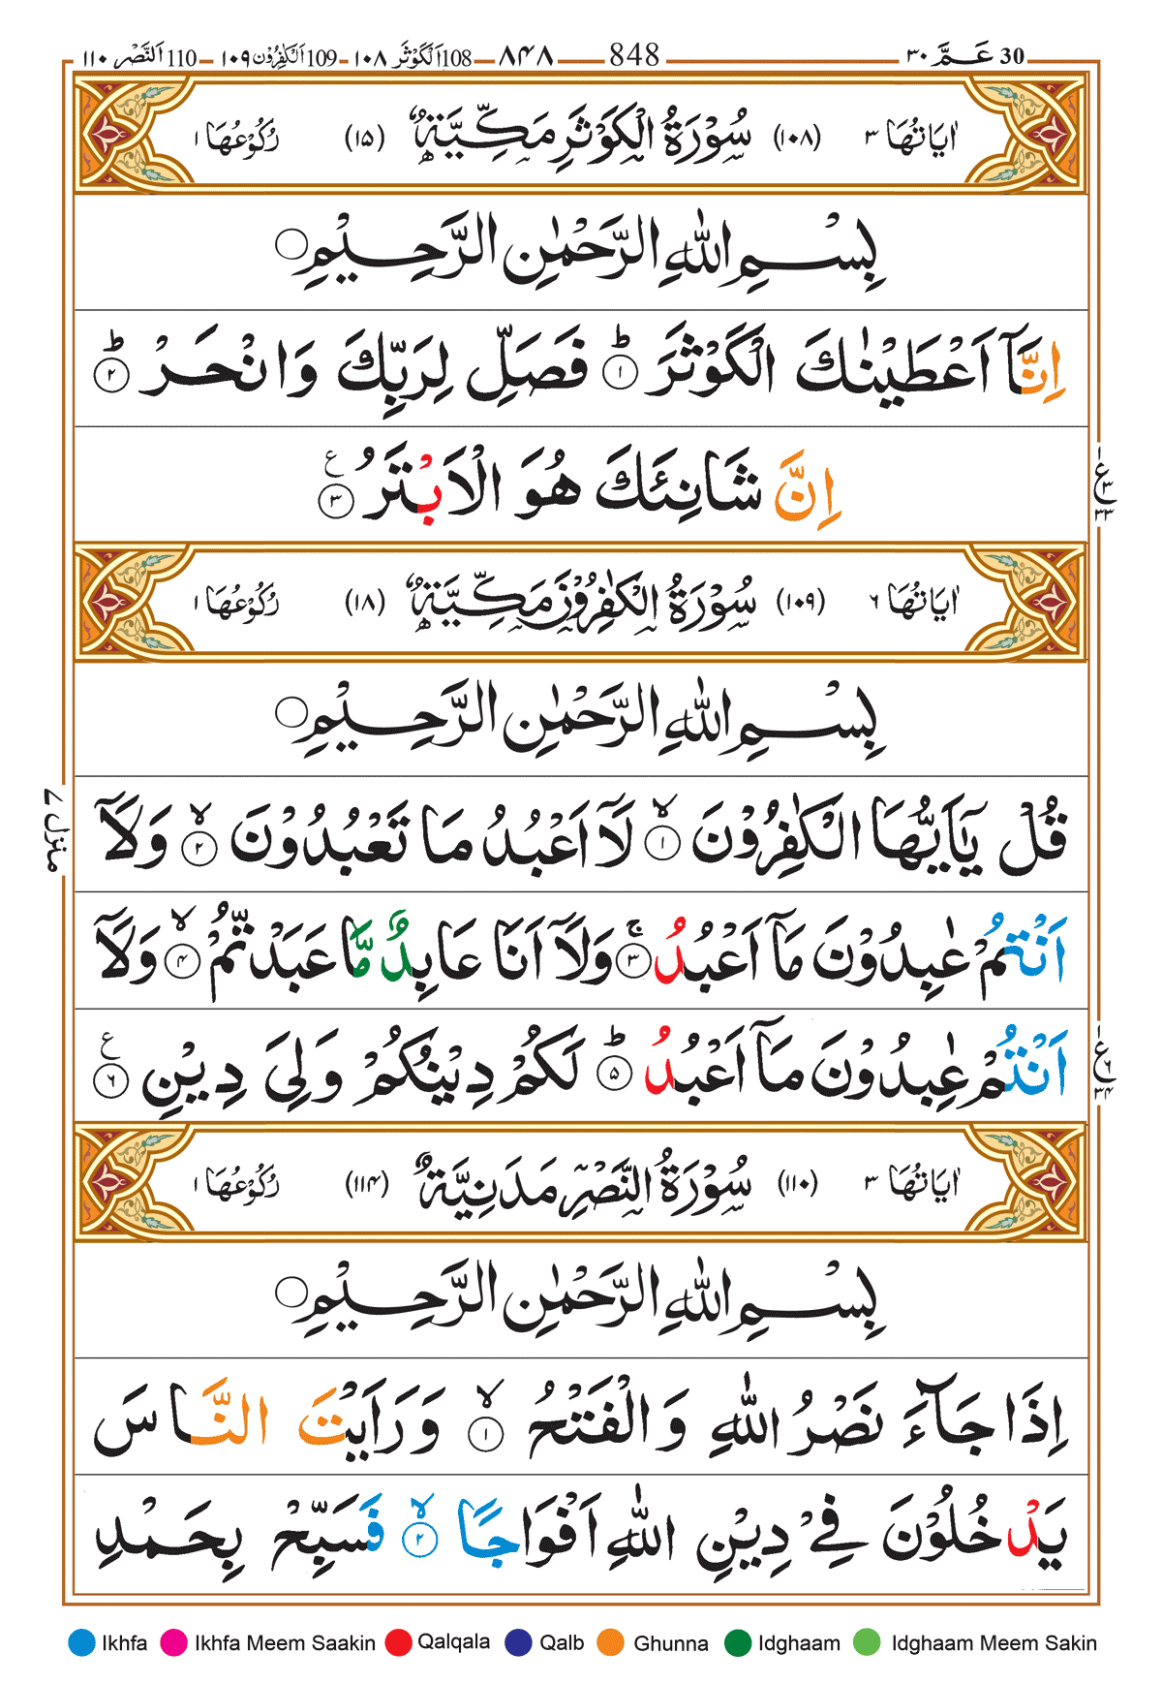 30 عَمَّ ٣٠ — 848 — ٨٤٨ — 108 اَلْكَوْثَر ١٠٨ — 109 اَلْكٰفِرُوْن ١٠٩ — 110 اَلنَّصْر ١١٠
اٰيَاتُهَا ٣ (١٠٨) سُوْرَةُ الْكَوْثَرِ مَكِّيَّةٌ (١٥) رُكُوْعُهَا ١
بِسْمِ اللّٰهِ الرَّحْمٰنِ الرَّحِيْمِ ۝
اِنَّاۤ اَعْطَيْنٰكَ الْكَوْثَرَ ؕ ١ فَصَلِّ لِرَبِّكَ وَانْحَرْ ؕ ٢
اِنَّ شَانِئَكَ هُوَ الْاَبْتَرُ ع ٣
ع ١ ٣ ٣٣
اٰيَاتُهَا ٦ (١٠٩) سُوْرَةُ الْكٰفِرُوْنَ مَكِّيَّةٌ (١٨) رُكُوْعُهَا ١
بِسْمِ اللّٰهِ الرَّحْمٰنِ الرَّحِيْمِ ۝
قُلْ يٰۤاَيُّهَا الْكٰفِرُوْنَ ۙ ١ لَاۤ اَعْبُدُ مَا تَعْبُدُوْنَ ۙ ٢ وَلَاۤ
منزل ٧
اَنْتُمْ عٰبِدُوْنَ مَاۤ اَعْبُدُ ۚ ٣ وَلَاۤ اَنَا عَابِدٌ مَّا عَبَدْتُّمْ ۙ ٤ وَلَاۤ
اَنْتُمْ عٰبِدُوْنَ مَاۤ اَعْبُدُ ؕ ٥ لَكُمْ دِيْنُكُمْ وَلِيَ دِيْنِ ع ٦
ع ١ ٦ ٣٤
اٰيَاتُهَا ٣ (١١٠) سُوْرَةُ النَّصْرِ مَدَنِيَّةٌ (١١٤) رُكُوْعُهَا ١
بِسْمِ اللّٰهِ الرَّحْمٰنِ الرَّحِيْمِ ۝
اِذَا جَآءَ نَصْرُ اللّٰهِ وَالْفَتْحُ ۙ ١ وَرَاَيْتَ النَّاسَ
يَدْخُلُوْنَ فِيْ دِيْنِ اللّٰهِ اَفْوَاجًا ۙ ٢ فَسَبِّحْ بِحَمْدِ
Ikhfa Ikhfa Meem Saakin Qalqala Qalb Ghunna Idghaam Idghaam Meem Sakin